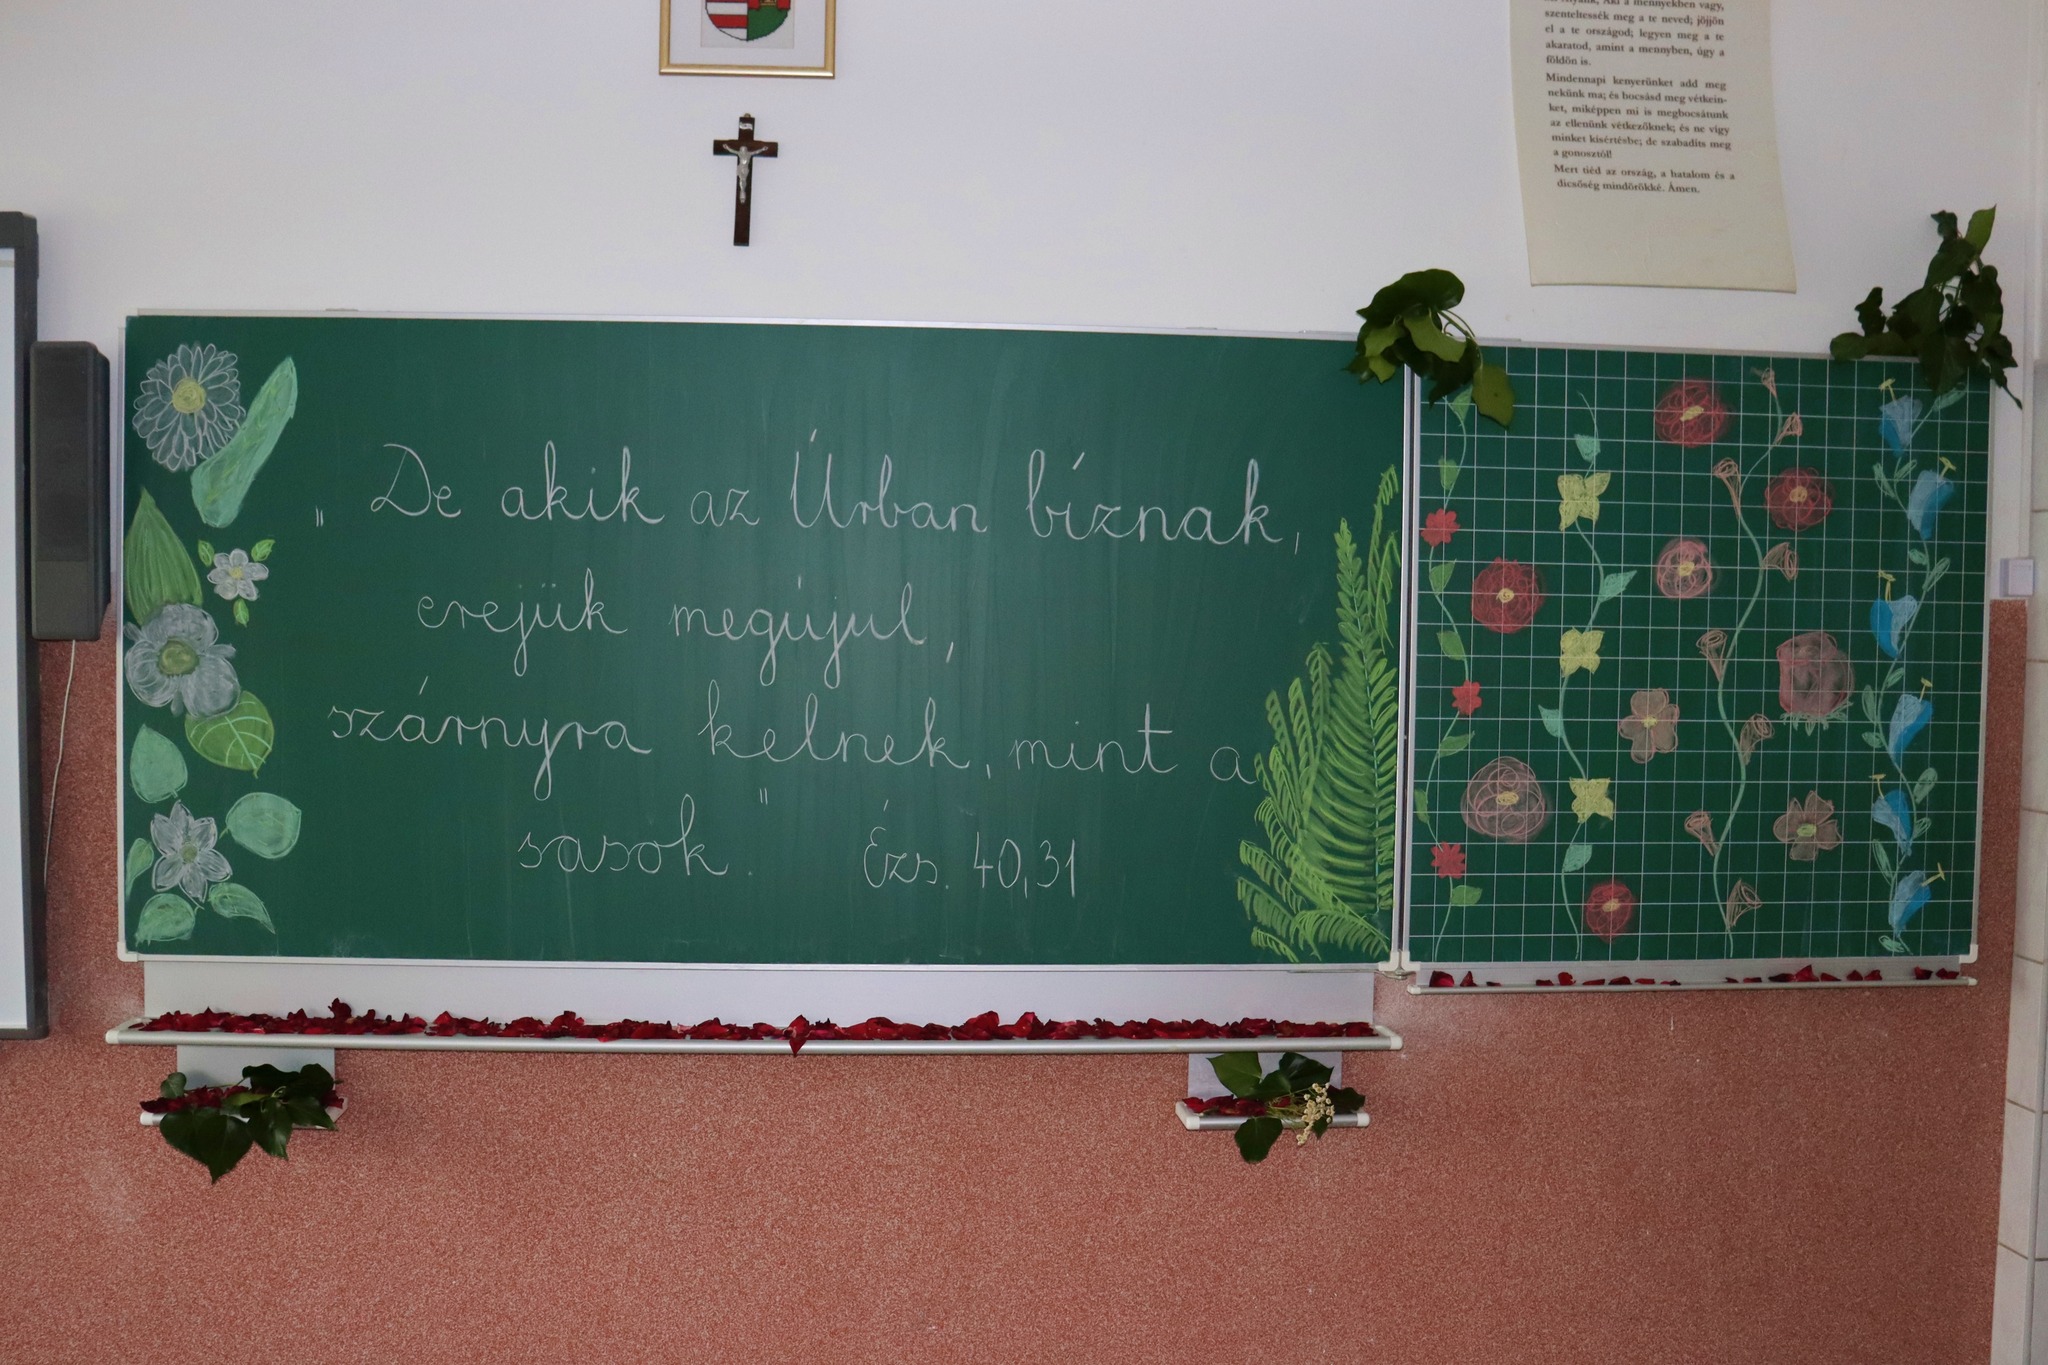 szenteltessék meg a te neved; jöjjön
el a te országod; legyen meg a te
akaratod, amint a mennyben, úgy a
földön is.
Mindennapi kenyerünket add meg
nekünk ma; és bocsásd meg vétkein-
ket, miképpen mi is megbocsátunk
az ellenünk vétkezőknek; és ne vígy
minket kísértésbe; de szabadíts meg
a gonosztól!
Mert tiéd az ország, a hatalom és a
dicsőség mindörökké. Ámen.
„ De akik az Úrban bíznak,
erejük megújul,
szárnyra kelnek, mint a
sasok." Ézs. 40,31